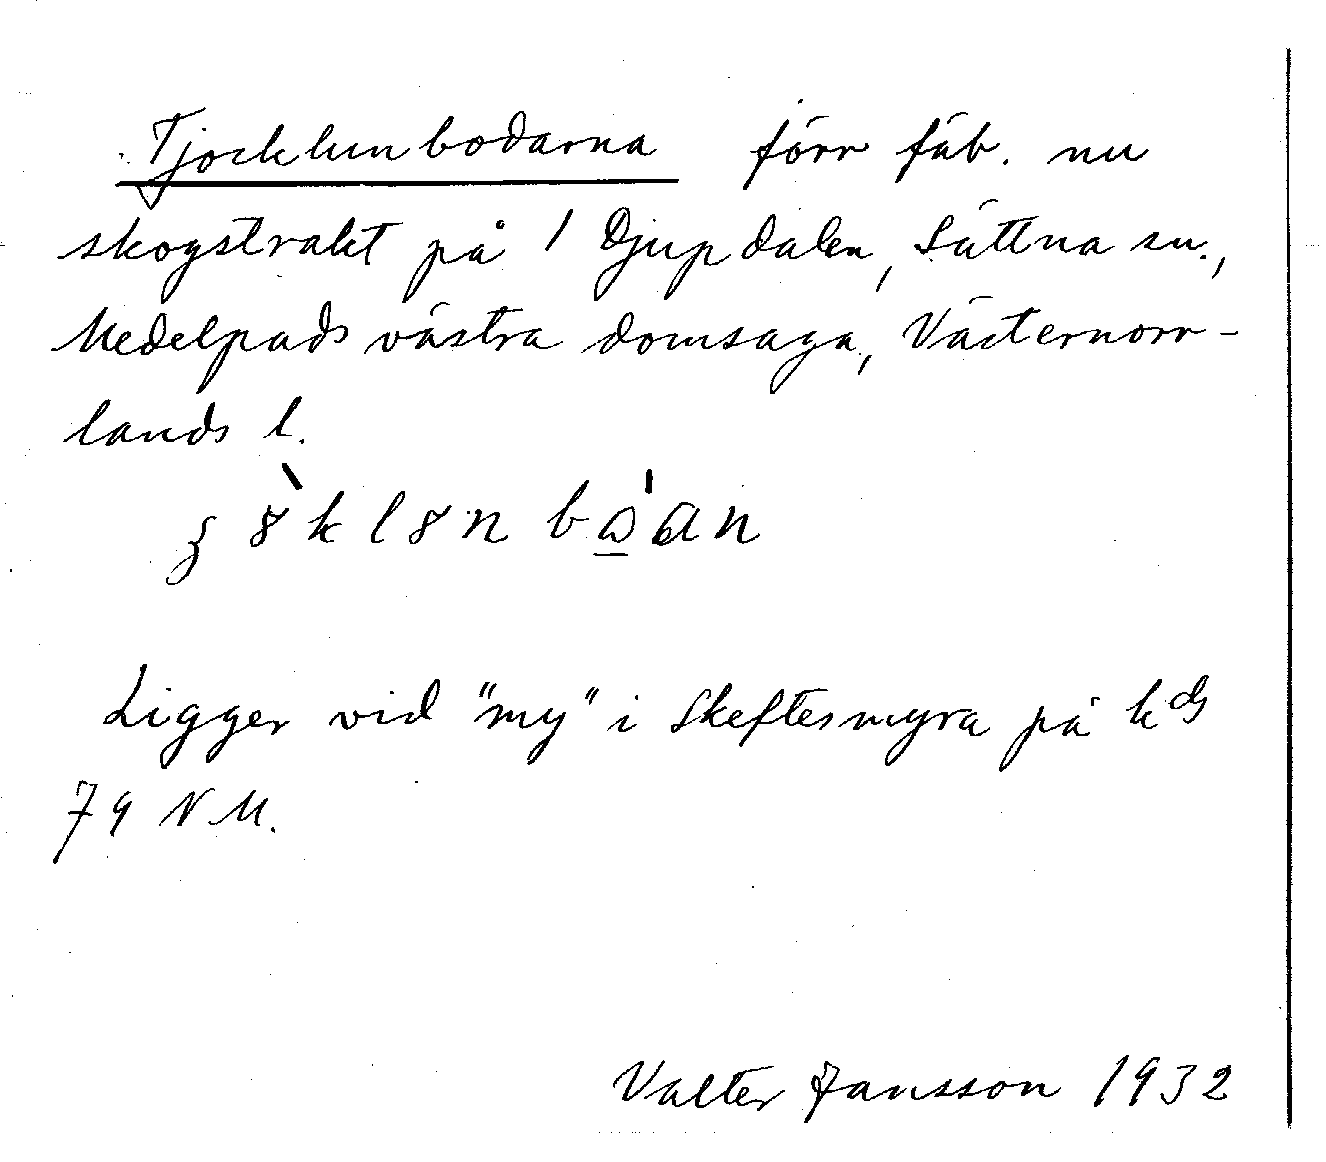 Tjocklunbodarna förr fäb. nu
skogstrakt på 1 Djupdalen, Sättna sn.,
Medelpads västra domsaga, Västernorr-
lands l.
Ligger vid "my" i Skeftesmyra på kds
79 N M.
Valter Jansson 1932